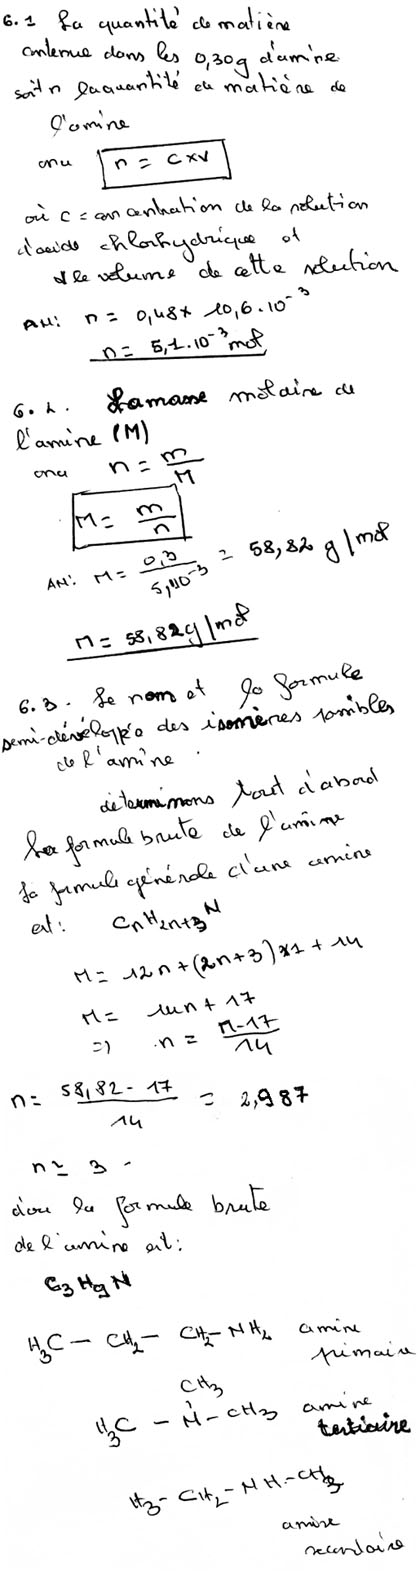 6.1 La quantité de matière
contenue dans les 0,30g d'amine
soit n la quantité de matière de
l'amine
on a n = C x V
où C = concentration de la solution
d'acide chlorhydrique et
V le volume de cette solution
AN: n = 0,48 x 10,6.10⁻³
n = 5,1.10⁻³ mol
6.2. La masse molaire de
l'amine (M)
on a n = m/M
M = m/n
AN: M = 0,3/5,1.10⁻³ = 58,82 g/mol
M = 58,82g/mol
6.3. Le nom et la formule
semi-développée des isomères possibles
de l'amine.
déterminons tout d'abord
la formule brute de l'amine
la formule générale d'une amine
est: CnH2n+3N
M = 12n + (2n+3)x1 + 14
M = 14n + 17
=> n = M-17/14
n = 58,82 - 17/14 = 2,987
n ≃ 3 -
d'où la formule brute
de l'amine est:
C3H9N
H3C - CH2 - CH2 - NH2 amine
primaire
CH3
H3C - N - CH3 amine
tertiaire
H3 - CH2 - NH - CH3
amine
secondaire